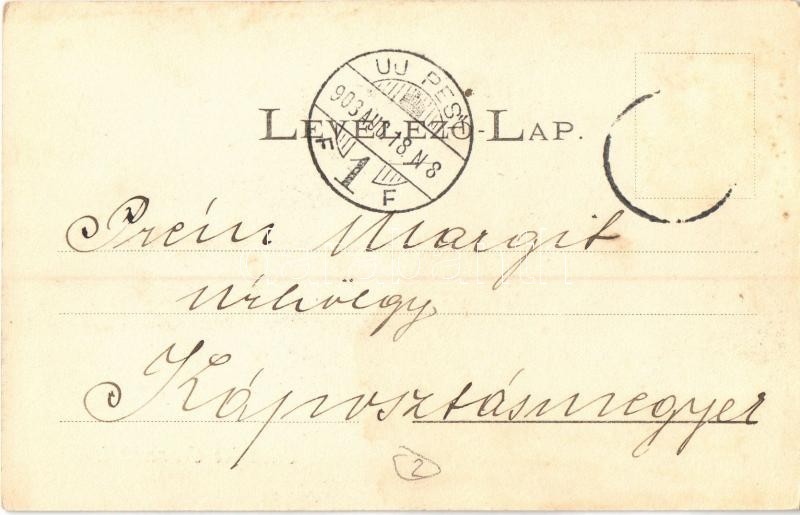 UJ PEST
903 AUG 18 N 8
F 1 F
LEVELEZŐ-LAP.
Prein Margit
úrhölgy
Káposztásmegyer
2